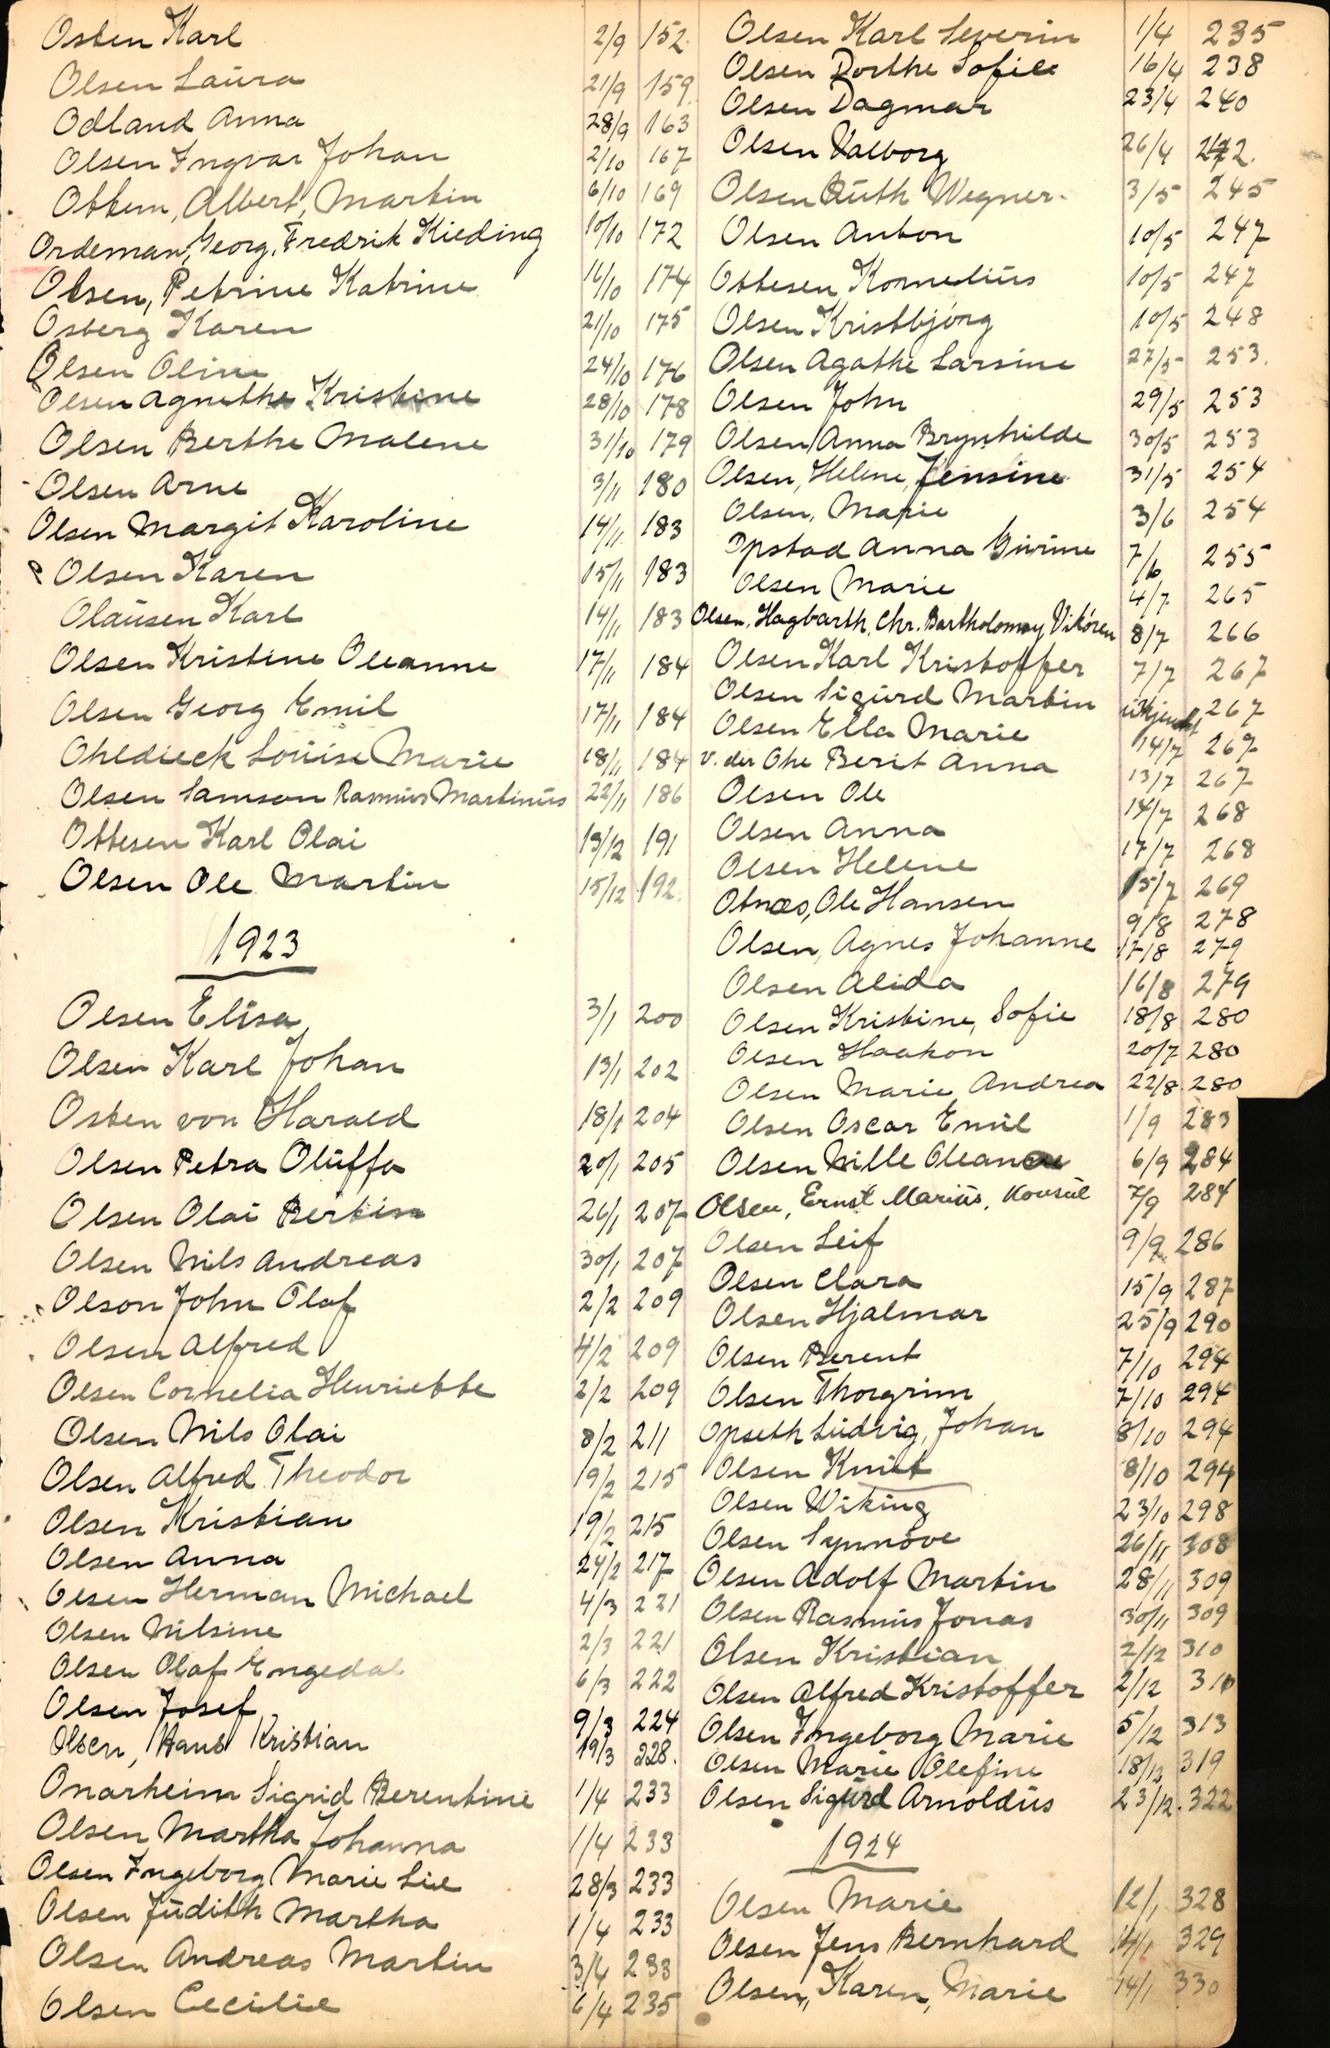 Osten Karl 2/9 152
Olsen Laura 21/9 159
Odland Anna 28/9 163
Olsen Ingvar Johan 2/10 167
Ottem, Albert, Martin 6/10 169
Ordeman, Georg, Fredrik Kieding 10/10 172
Olsen, Petrine Katrine 16/10 174
Osberg Karen 21/10 175
Olsen Oline 24/10 176
Olsen Agnethe Kristine 28/10 178
Olsen Berthe Malene 31/10 179
Olsen Arne 3/11 180
Olsen Margit Karoline 14/11 183
Olsen Karen 15/11 183
Olausen Karl 14/11 183
Olsen Kristine Oleanne 17/11 184
Olsen Georg Emil 17/11 184
Ohldieck Louise Marie 18/11 184
Olsen Samson Rasmus Martinus 22/11 186
Ottesen Karl Olai 13/12 191
Olsen Ole Martin 15/12 192
1923
Olsen Elisa 3/1 200
Olsen Karl Johan 13/1 202
Osten von Harald 18/1 204
Olsen Petra Oluffa 20/1 205
Olsen Olai Bertin 26/1 207
Olsen Nils Andreas 30/1 207
Olson John Olaf 2/2 209
Olsen Alfred 4/2 209
Olsen Cornelia Henriette 2/2 209
Olsen Nils Olai 8/2 211
Olsen Alfred Theodor 19/2 215
Olsen Kristian 19/2 215
Olsen Anna 24/2 217
Olsen Herman Michael 4/3 221
Olsen Nilsine 2/3 221
Olsen Olaf Engedal 6/3 222
Olsen Josef 9/3 224
Olsen, Hans Kristian 19/3 228.
Onarheim Sigrid Berentine 1/4 233
Olsen Martha Johanna 1/4 233
Olsen Ingeborg Marie Lie 28/3 233
Olsen Judith Martha 1/4 233
Olsen Andreas Martin 3/4 233
Olsen Cecilie 6/4 235
Olsen Karl Severin 1/4 235
Olsen Dorthe Sofie 16/4 238
Olsen Dagmar 23/4 240
Olsen Valborg 26/4 242.
Olsen Ruth Wegner. 3/5 245
Olsen Anton 10/5 247
Ottesen Kornelius 10/5 247
Olsen Kristbjörg 10/5 248
Olsen Agathe Larsine 27/5 253.
Olsen John 29/5 253
Olsen Anna Brynhilde 30/5 253
Olsen, Helene, Jensine 31/5 254
Olsen, Marie 3/6 254
Opstad Anna Gurine 7/6 255
Olsen Marie 4/7 265
Olsen, Hagbarth, Chr. Bartholomey Vikören 8/7 266
Olsen Karl Kristoffer 7/7 267
Olsen Sigurd Martin ukjendt 267
Olsen Ella Marie 14/7 267
v. der Ohe Berit Anna 13/7 267
Olsen Ole 14/7 268
Olsen Anna 17/7 268
Olsen Helene 15/7 269
Otnæs, Ole Hansen 9/8 278
Olsen, Agnes Johanne 17/8 279
Olsen Alida 16/8 279
Olsen Kristine, Sofie 18/8 280
Olsen Haakon 20/7 280
Olsen Marie Andrea 22/8 280
Olsen Oscar Emil 1/9 283
Olsen Nille Oleanna 6/9 284
Olsen, Ernst Marius, Konsul 7/9 284
Olsen Leif 9/9 286
Olsen Clara 15/9 287
Olsen Hjalmar 25/9 290
Olsen Berent 7/10 294
Olsen Thorgrim 7/10 294
Opseth Ludvig, Johan 8/10 294
Olsen Knut 8/10 294
Olsen Wiking 23/10 298
Olsen Synnöve 26/11 308
Olsen Adolf Martin 28/11 309
Olsen Rasmus Jonas 30/11 309
Olsen Kristian 2/12 310
Olsen Alfred Kristoffer 2/12 310
Olsen Ingeborg Marie 5/12 313
Olsen Marie Olefine 18/12 319
Olsen Sigurd Arnoldus 23/12. 322
1924
Olsen Marie 12/1 328
Olsen Jens Bernhard 14/1 329
Olsen, Karen, Marie 14/1 330